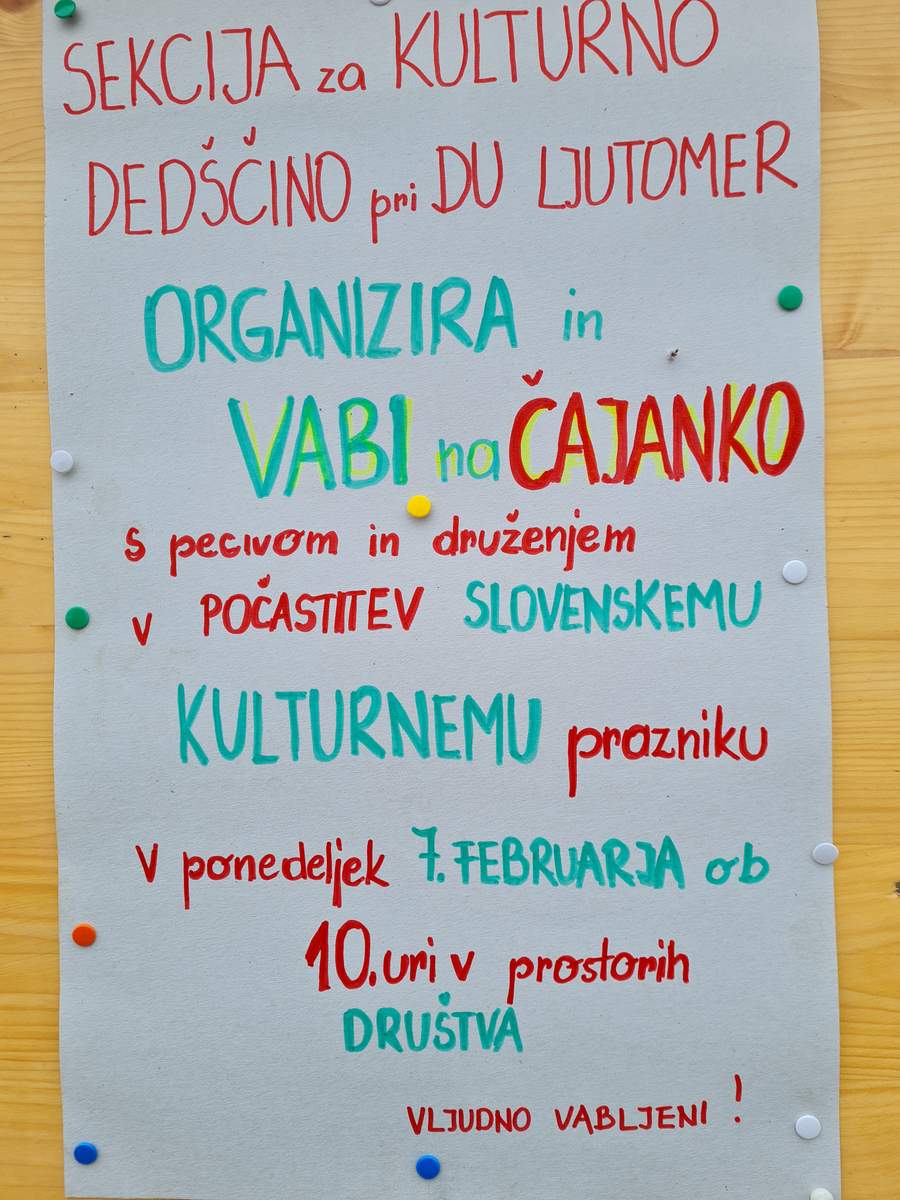 SEKCIJA za KULTURNO
DEDŠČINO pri DU LJUTOMER
ORGANIZIRA in
VABI na ČAJANKO
s pecivom in druženjem
v POČASTITEV SLOVENSKEMU
KULTURNEMU prazniku
v ponedeljek 7. FEBRUARJA ob
10. uri v prostorih
DRUŠTVA
VLJUDNO VABLJENI!